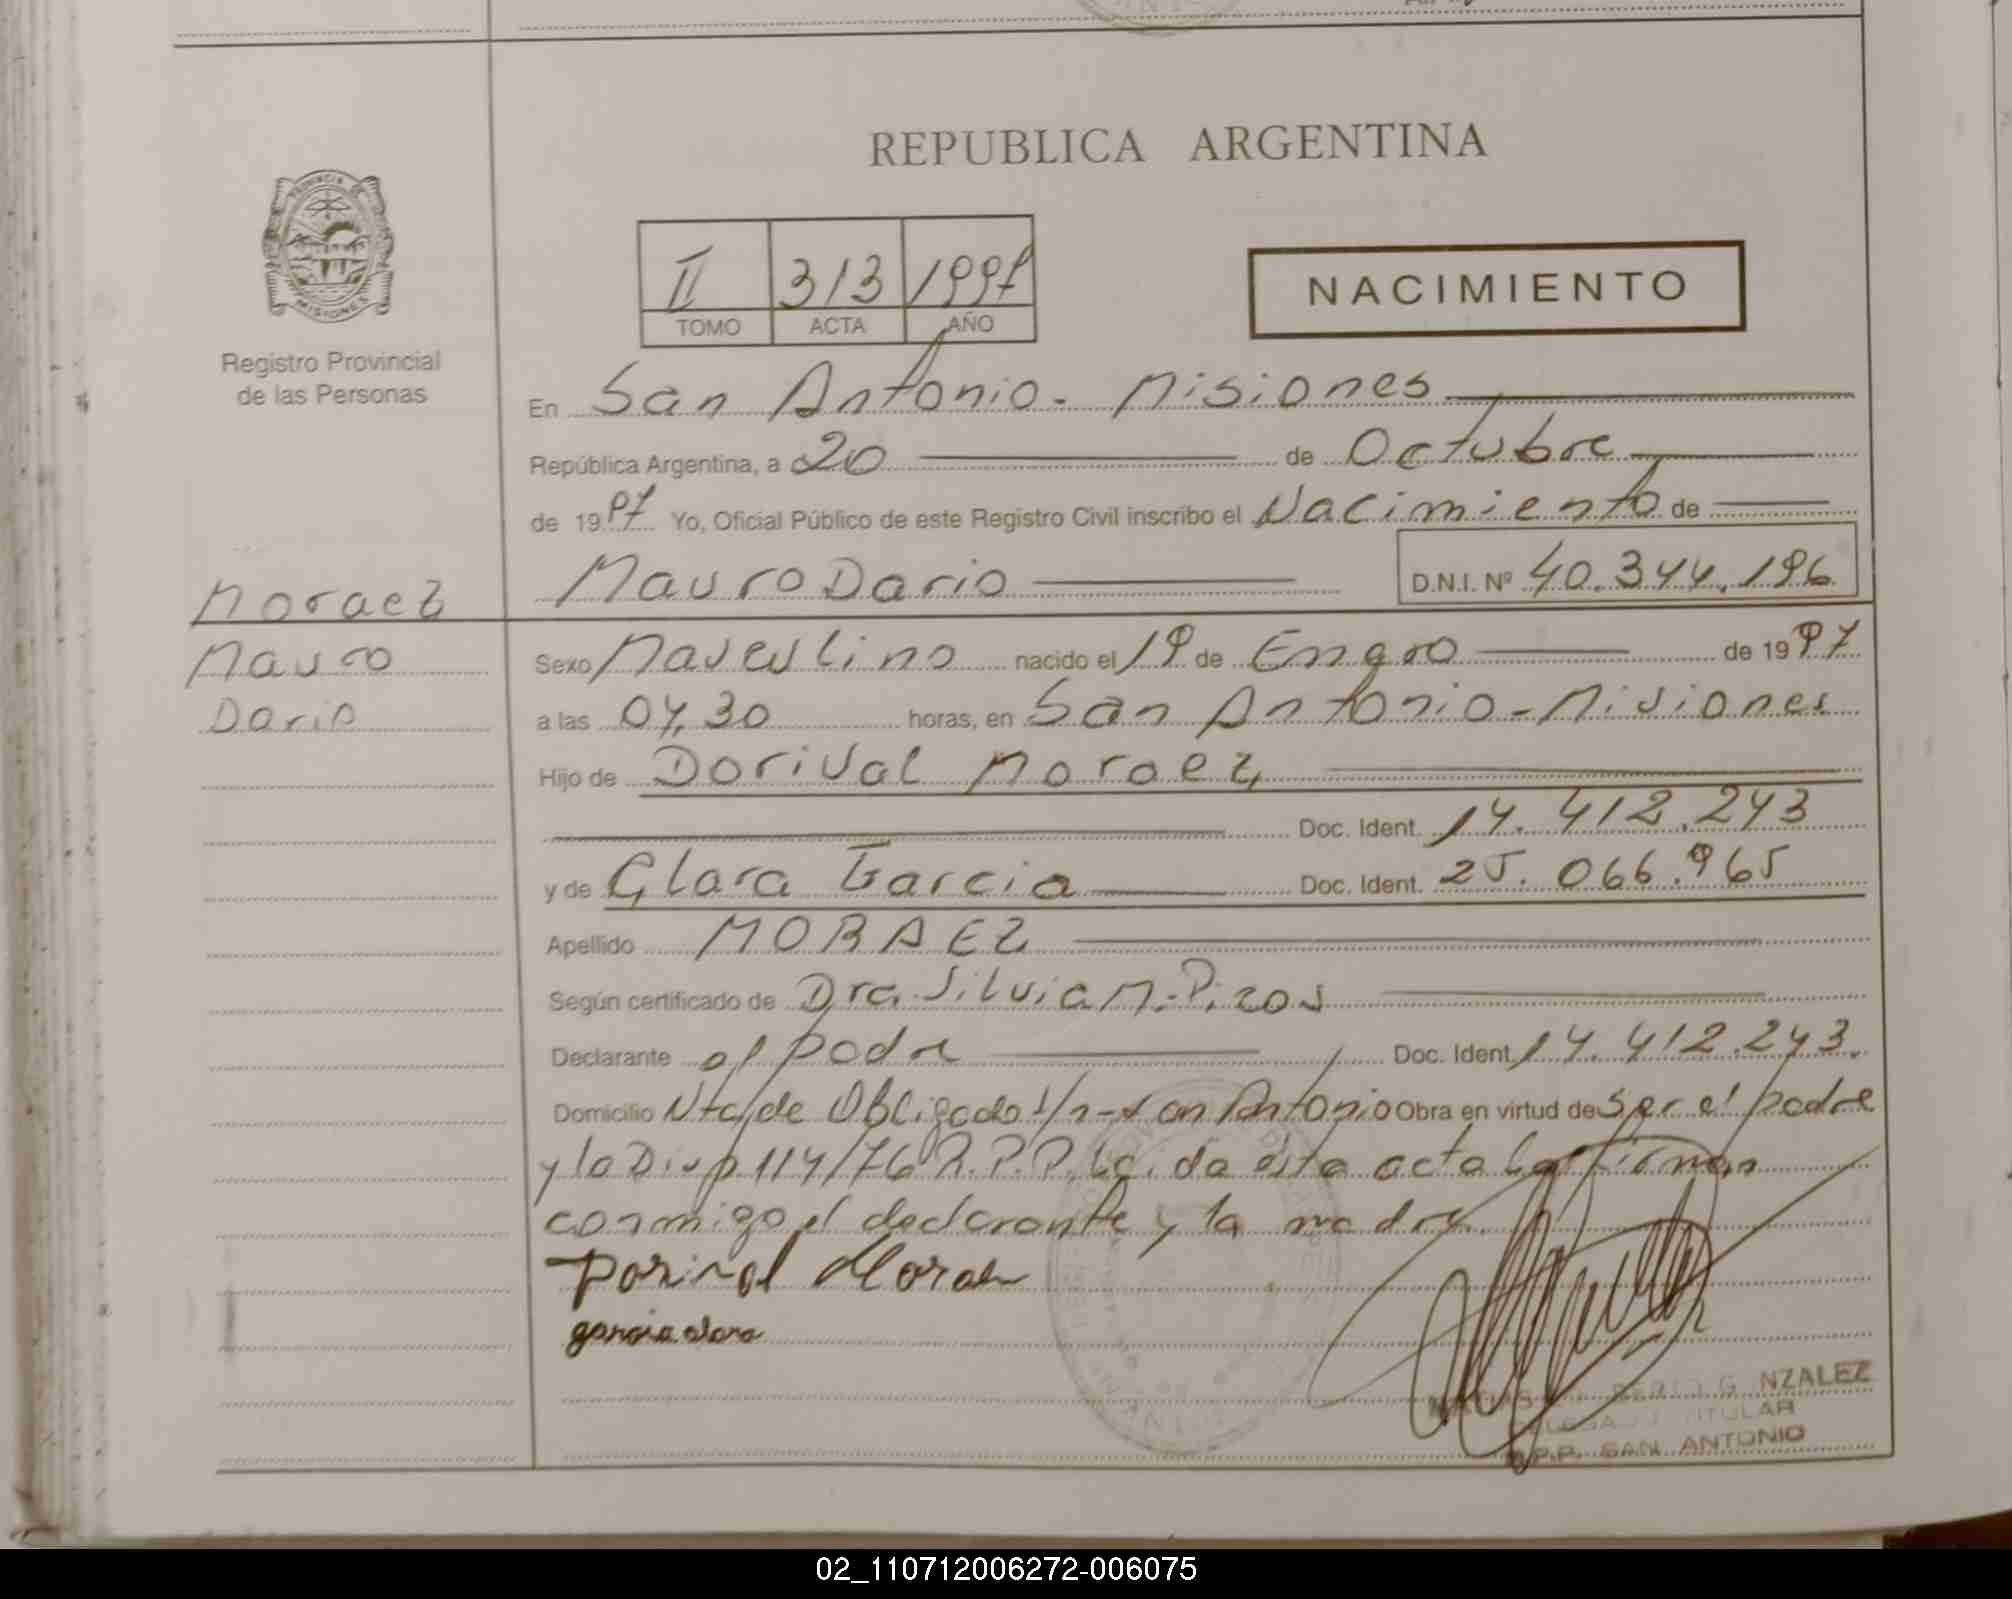 REPUBLICA ARGENTINA
PROVINCIA DE
MISIONES
Registro Provincial
de las Personas
II 313 1997
TOMO ACTA AÑO
NACIMIENTO
En San Antonio - Misiones
República Argentina, a 20 de Octubre
de 1997 Yo, Oficial Público de este Registro Civil inscribo el Nacimiento de
Mauro Dario D.N.I. Nº 40.344.196
Moraez
Mauro
Dario
Sexo Masculino nacido el 19 de Enero de 1997
a las 04,30 horas, en San Antonio - Misiones
Hijo de Dorival Moraez
Doc. Ident. 14.412.243
y de Clara Garcia Doc. Ident. 25.066.965
Apellido MORAEZ
Según certificado de Dra. Silvia M. Pizos
Declarante el padre Doc. Ident. 14.412.243.
Domicilio Vta/de Obligado S/n - San Antonio Obra en virtud de Ser el padre
y la Disp 114/76 R.P.P. Le. da esta acta la firman
conmigo el declarante y la madre.
Dorival Moraez
garcia clara
NZALEZ
TITULAR
R.P.P. SAN ANTONIO
02_110712006272-006075